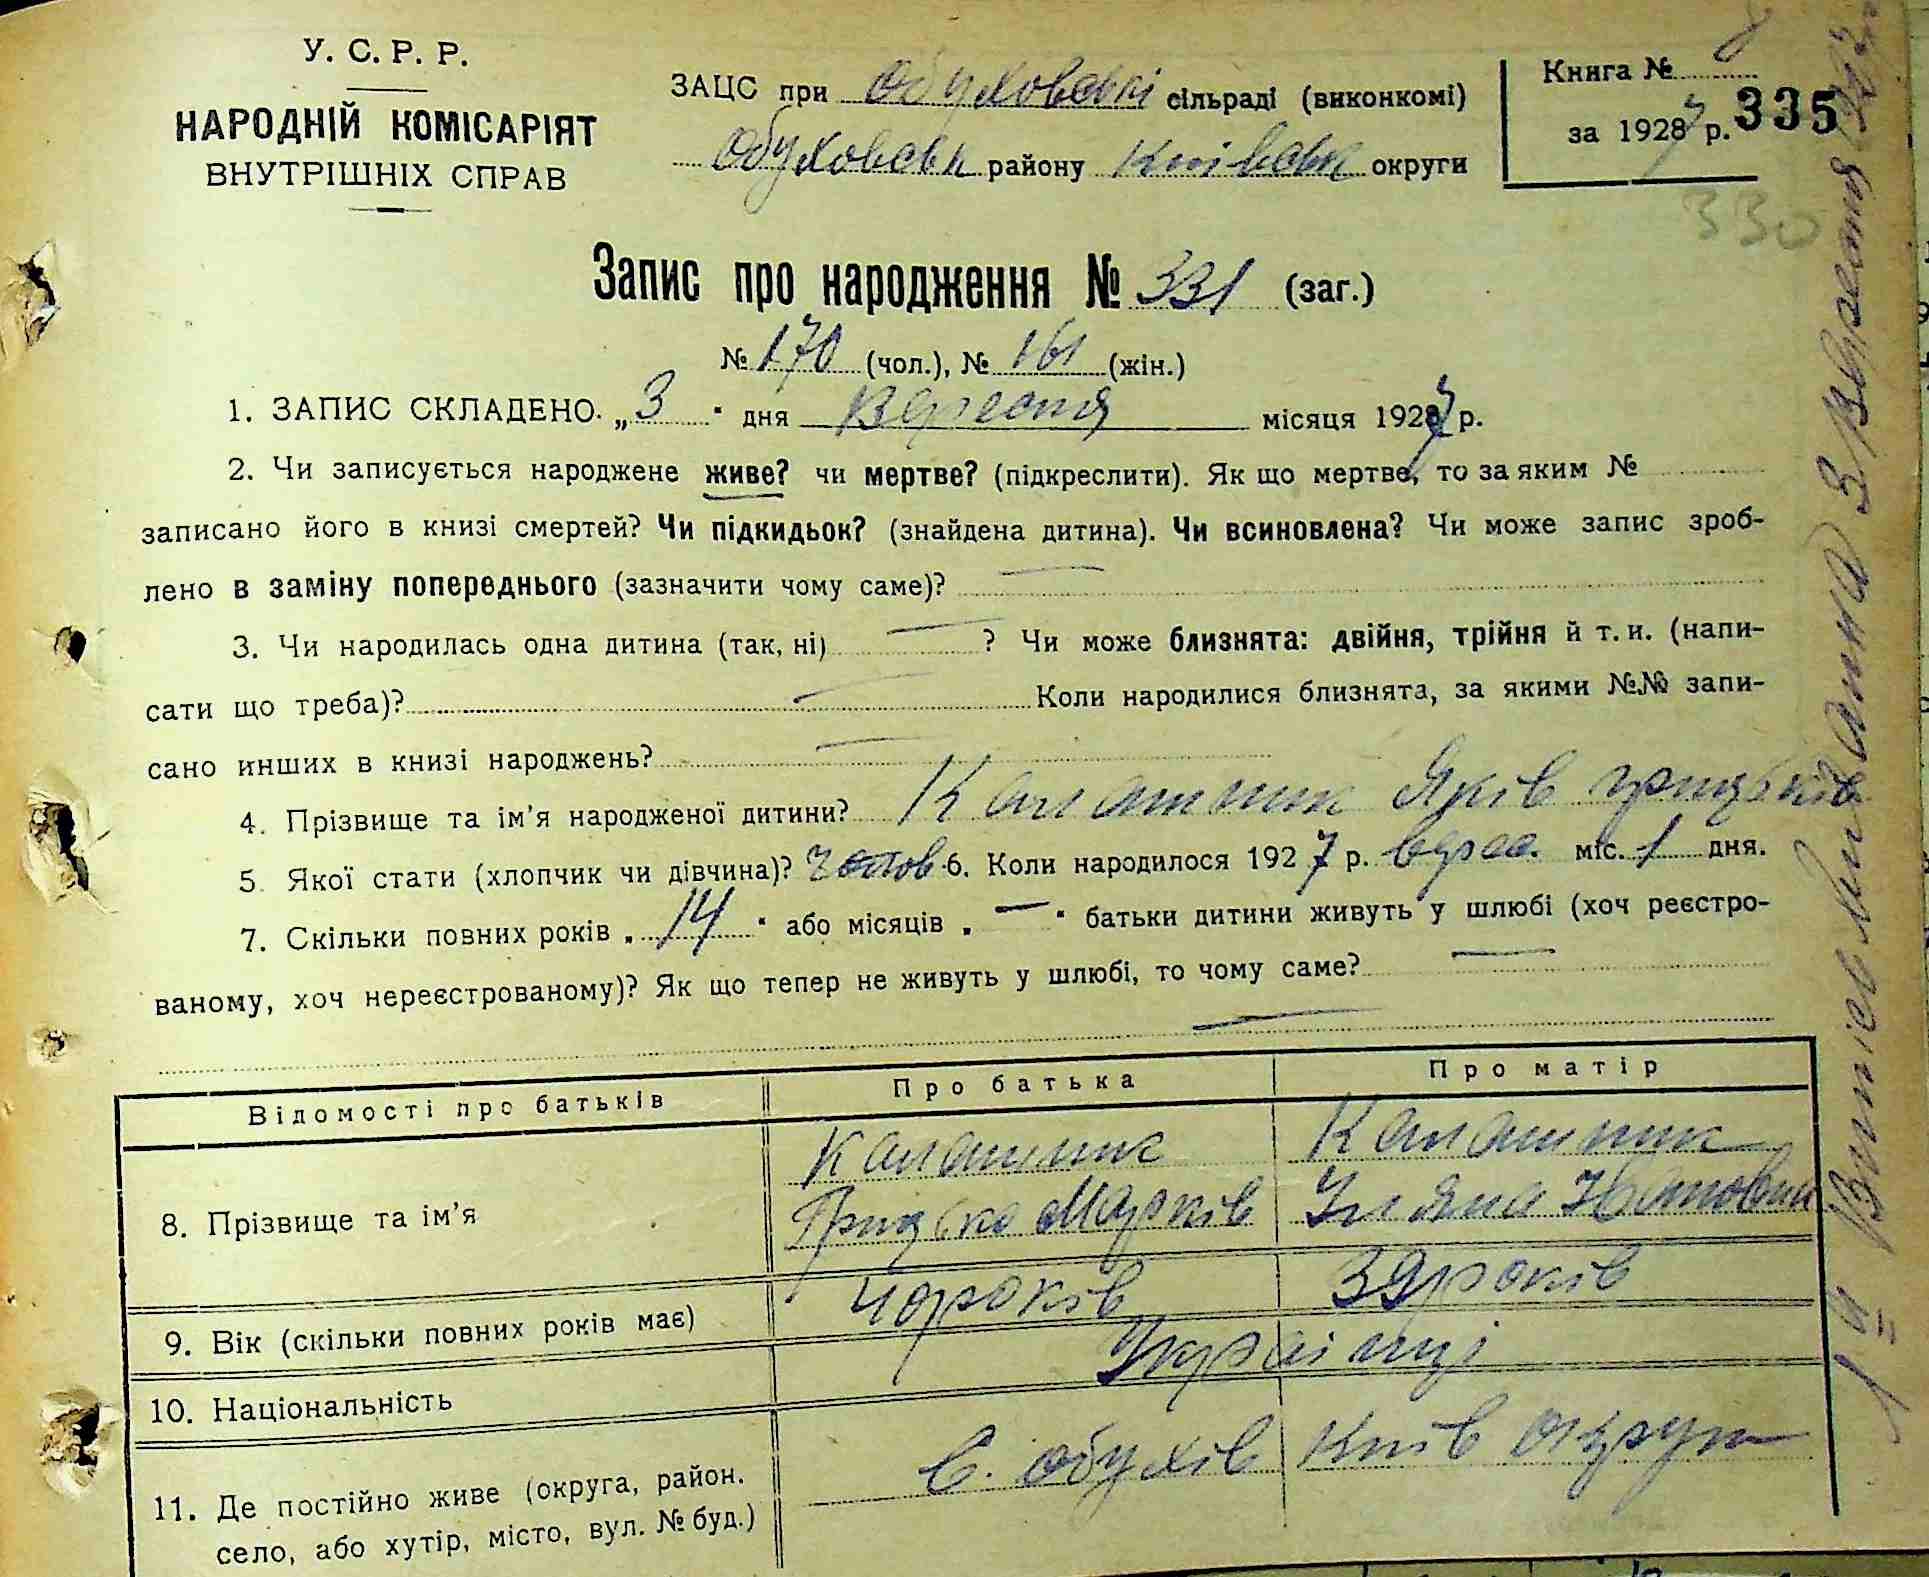 У. С. Р. Р.
НАРОДНІЙ КОМІСАРІЯТ
ВНУТРІШНІХ СПРАВ
ЗАЦС при Обуховські сільраді (виконкомі)
Обуховськ району Київськ округи
Книга № 8
за 19287 р. 335
330
Запис про народження № 331 (заг.)
№ 170 (чол.), № 161 (жін.)
1. ЗАПИС СКЛАДЕНО. „ 3 " дня Вересня місяця 1927 р.
2. Чи записується народжене живе? чи мертве? (підкреслити). Як що мертве, то за яким №
записано його в книзі смертей? Чи підкидьок? (знайдена дитина). Чи всиновлена? Чи може запис зроб-
лено в заміну попереднього (зазначити чому саме)? —
3. Чи народилась одна дитина (так, ні) — ? Чи може близнята: двійня, трійня й т. и. (напи-
сати що треба)? — Коли народилися близнята, за якими №№ запи-
сано инших в книзі народжень? —
4. Прізвище та ім'я народженої дитини? Калашник Яків Грицьків
5. Якої стати (хлопчик чи дівчина)? Чолов 6. Коли народилося 1927 р. верес. міс. 1 дня.
7. Скільки повних років „ 14 " або місяців „ — " батьки дитини живуть у шлюбі (хоч реєстро-
ваному, хоч нереєстрованому)? Як що тепер не живуть у шлюбі, то чому саме? —
—
Відомості про батьків Про батька Про матір
Калашник Калашник
8. Прізвище та ім'я Грицько Марків Уляна
9. Вік (скільки повних років має) 40 років 39 років
10. Національність Українці
11. Де постійно живе (округа, район. с. Обухів Київ округи
село, або хутір, місто, вул. № буд.)
3 Вересня